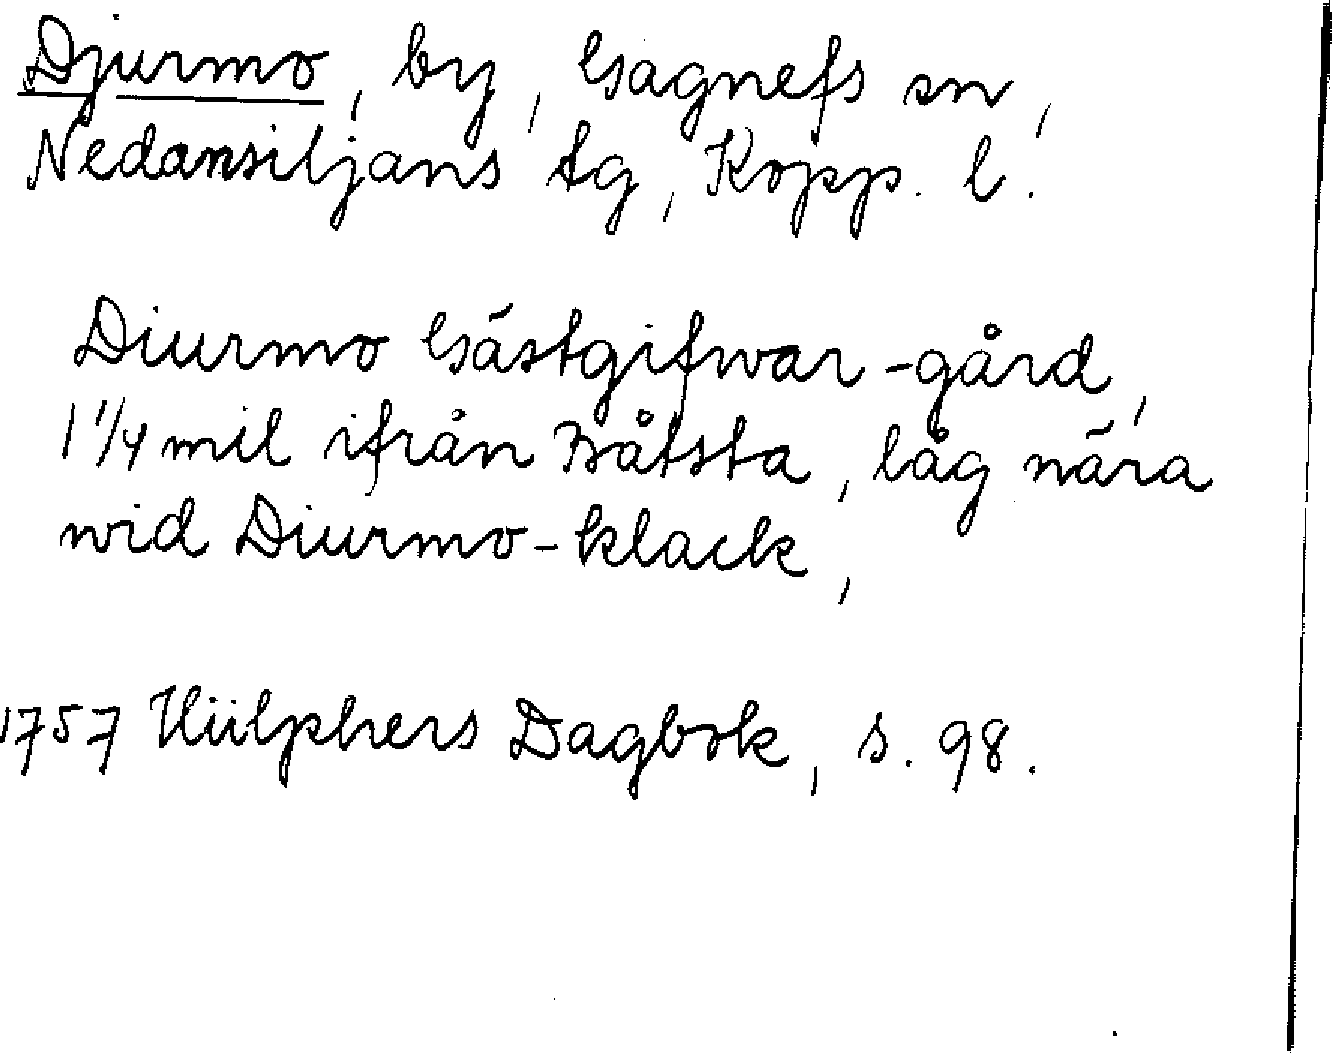 Djurmo, by, Gagnefs sn,
Nedansiljans tg, Kopp. l.
Diurmo Gästgifwar-gård,
1 1/4 mil ifrån Båtsta, låg nära
wid Diurmo-klack,
1757 Hülphers Dagbok, s. 98.